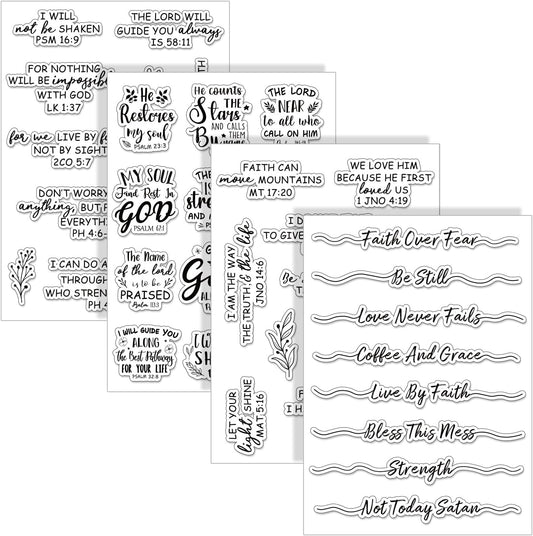 I WILL
not be SHAKEN
PSM 16:9
THE LORD WILL
GUIDE YOU always
IS 58:11
FOR NOTHING
WILL BE impossible
WITH GOD
LK 1:37
for we LIVE BY
NOT BY SIGHT
2CO 5:7
DON'T WORRY
anything, BUT
EVERYTHING
PH 4:6-
I CAN DO
THROUGH
WHO
PH 4
He
Restores
my soul
PSALM 23:3
He counts
THE
Stars
AND CALLS
THEM
By
name
THE LORD
IS
NEAR
to all who
CALL ON HIM
MY SOUL
Find Rest In
GOD
PSALM 62:1
THE
IS
AND
The Name
of the lord
is to be
PRAISED
Psalm 113:3
I WILL GUIDE YOU
ALONG
the Best Pathway
FOR YOUR LIFE
PSALM 32:8
FAITH CAN
move MOUNTAINS
MT 17:20
WE LOVE HIM
BECAUSE HE FIRST
loved US
1 JNO 4:19
TO GIVE
I AM THE WAY
THE TRUTH & the life
JNO 14:6
LET YOUR
light SHINE
MAT 5:16
Faith Over Fear
Be Still
Love Never Fails
Coffee And Grace
Live By Faith
Bless This Mess
Strength
Not Today Satan